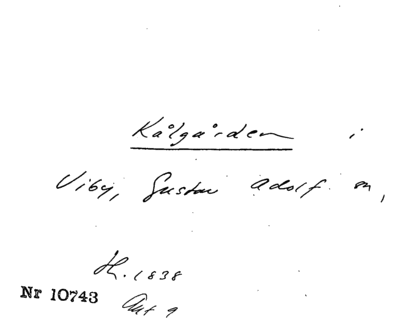 Kålgården i
Viby, Gustav Adolf sn,
H. 1838
Nr 10743
Akt 9